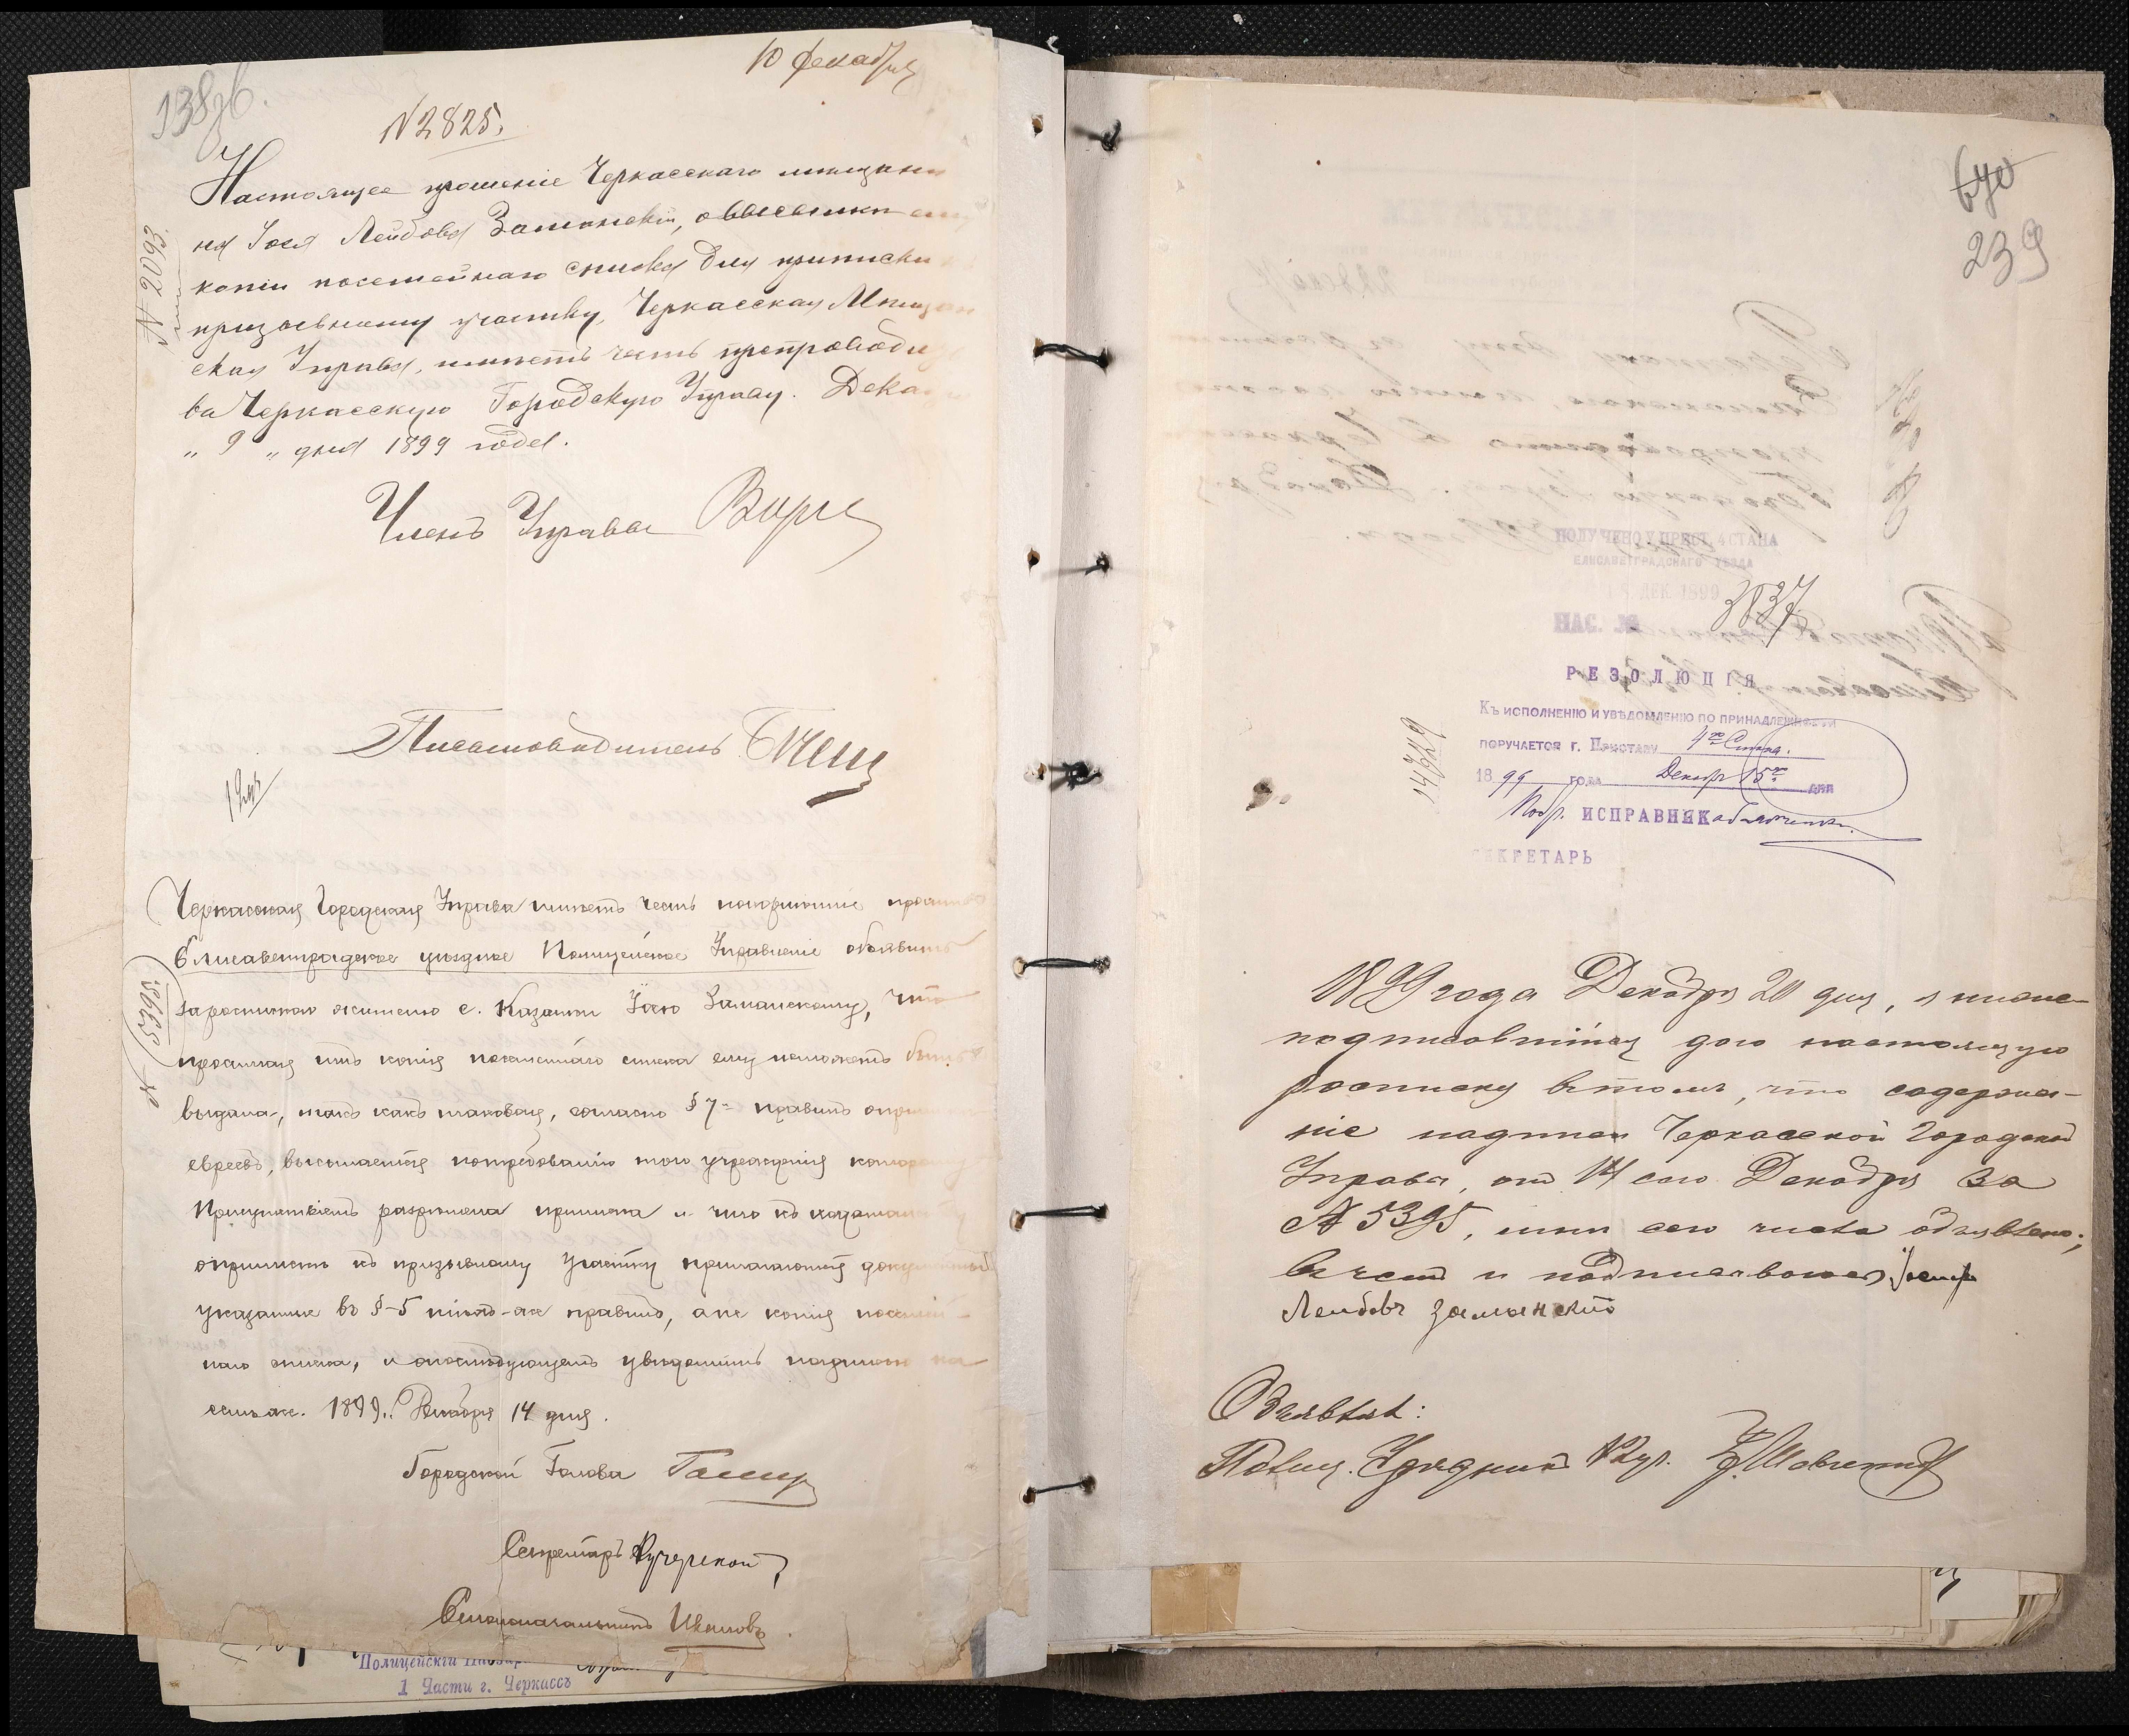 10 декабря
138 об.
№ 2825.
Настоящее прошеніе Черкасскаго мѣщани
на Іося Лейбова Заманскій, о высылки ему
копіи посемейнаго списка для приписки
призывному участку, Черкасская Мѣщан
ская Управа, имѣетъ честь препроводи
ва Черкасскую Городскую Управу. Дека
" 9 " дня 1899 года.
№ 2093
Членъ Управы
Письмоводитель
Черкасская Городская Управа имѣетъ честь покорнѣйше проситъ
Елисаветградское уѣздное Полицейское Управленіе объявить
заросписко жителю с. Казанки Іосю Заманскому, что
просимая имъ копія посемейнаго списка ему неможетъ быть
выдана, такъ какъ таковая, согласно § 7 правилъ опри
евреевъ, высылается потребованію того учрежденія котор
Присутствіемъ разрѣшена приписка и что къ ходатайству
оприпискѣ къ призывному участку прилагаются документы
указанные въ §-5 тѣхъ-же правилъ, а не копія посемей-
наго списка, и опослѣдующемъ увѣдомить надписью на
семъ же. 1899 г. Декабря 14 дня.
№ 5395
Городской Голова
Секретарь Кучерской
Столоначальникъ Ивановъ
Полицейскій Надзир
1 Части г. Черкассъ
670
239
ПОЛУЧЕНО У ПРИСТ. 4 СТАНА
ЕЛИСАВЕТГРАДСКАГО УѢЗДА
ДЕК. 1899
НАС. № 3837
РЕЗОЛЮЦІЯ
Къ исполненію и увѣдомленію по принадлежности
поручается г. Приставу 4го Стана.
1899 года Декабр 15го дня
Под. ИСПРАВНИК
СЕКРЕТАРЬ
14729
1899 года Декабря 20 дня, я ниже-
подписавшійся даю настоящую
росписку втомъ, что содержа-
ніе надписи Черкасской Городской
Управы, отъ 14 сего Декабря за
№ 5395, мнѣ сего числа объявлено;
вчемъ и подписываюсь Іось
Лейбовъ заманскій
Объявилъ:
Полиц. Урядникъ